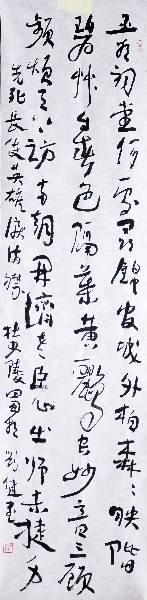 丞相祠堂何處尋錦官城外柏森〻映階
碧艸自春色隔葉黃鸝空好音三顧
頻煩天下計兩朝開濟老臣心出師未捷身
先死長使英雄淚滿襟 杜少陵蜀相 劉健書